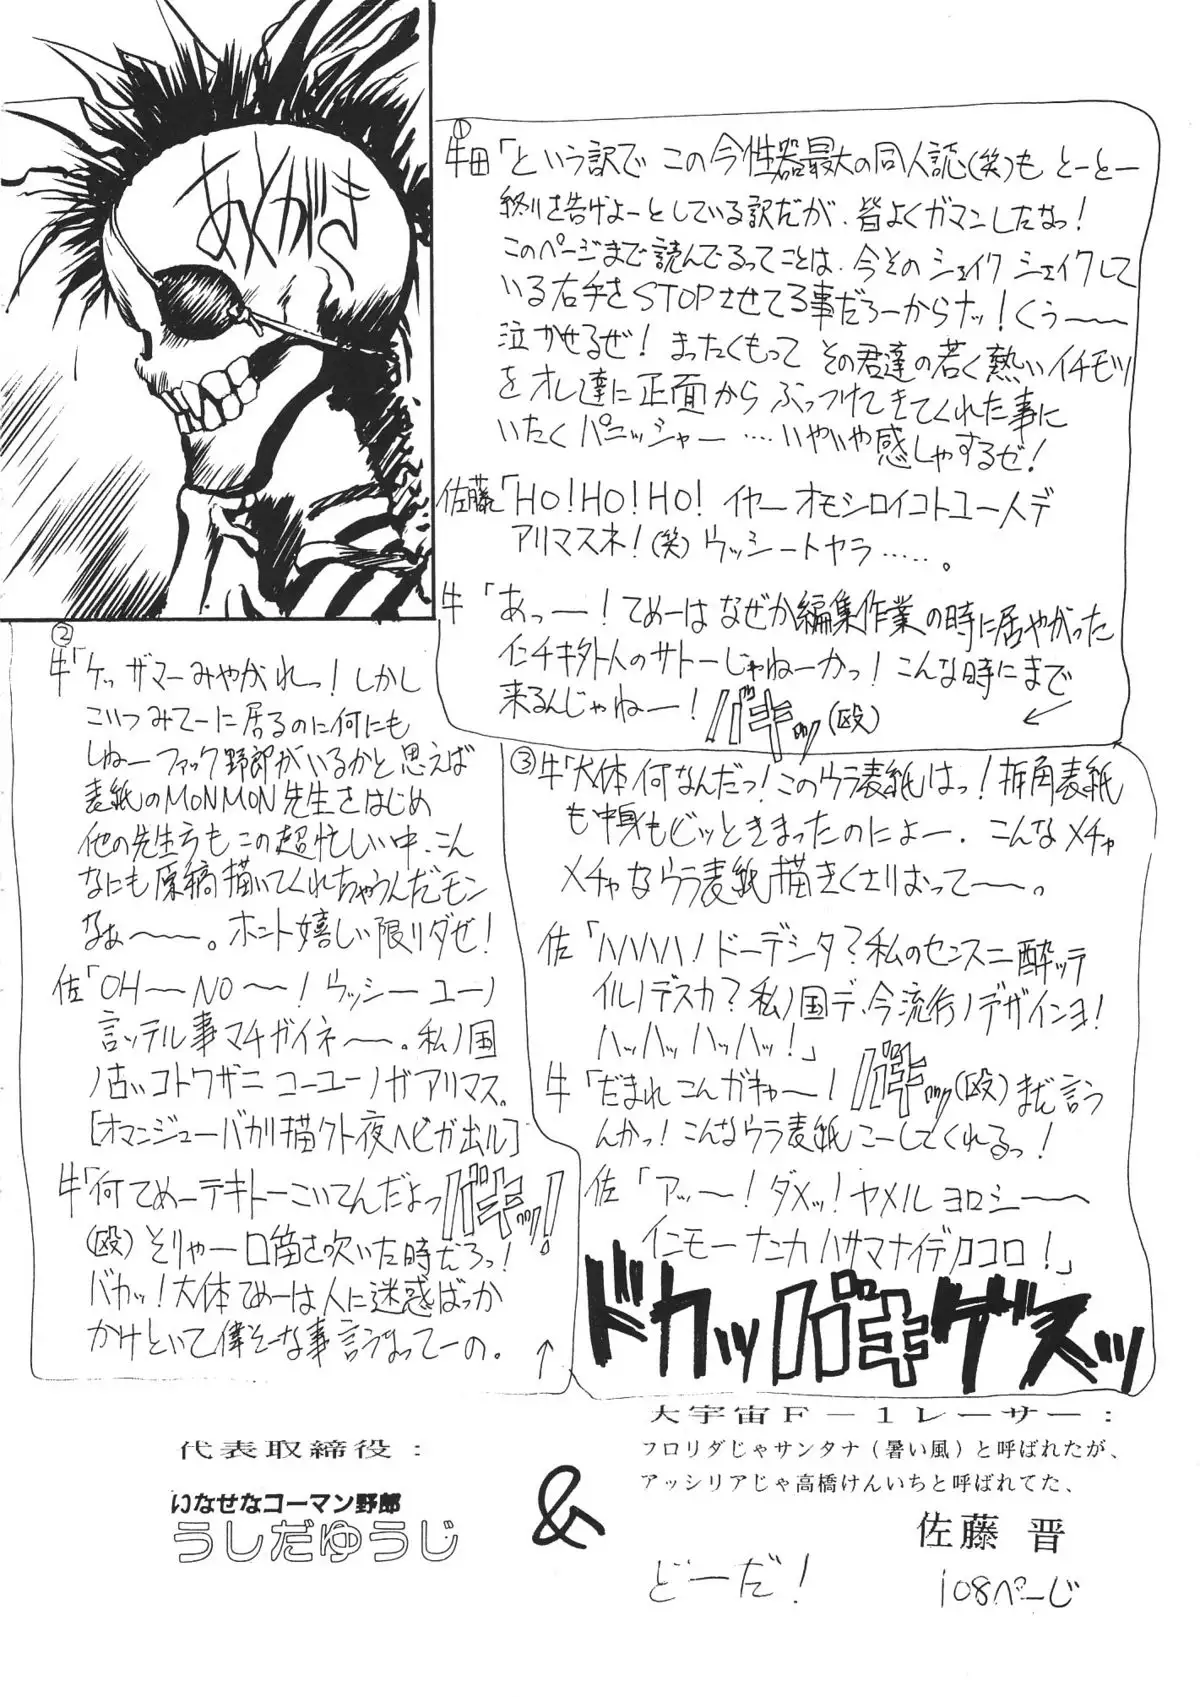 あくがき
①
牛田「という訳で この今性器最大の同人誌(笑)も とーとー
終りを告げよーとしている訳だが、皆よくガマンしたなっ！
このページまで読んでるってことは、今そのシェイク シェイクして
いる右手をSTOPさせてる事だろーからナッ！くぅ〜〜
泣かせるぜ！まったくもって その君達の若く熱いイチモツ
をオレ達に正面から ぶっつけてきてくれた事に
いたく パニッシャー‥‥いやいや感しゃするゼ！
佐藤「HO！HO！HO！ イヤーオモシロイコトユー人デ
アリマスネ！(笑)ウッシートヤラ……。
牛「あっー！てめーは なぜか編集作業の時に居やがった
インチキ外人のサトーじゃねーかっ！こんな時にまで
来るんじゃねー！バキッ(殴)
②
牛「ケッ ザマーみやがれっ！しかし
こいつみてーに居るのに何にも
しねーファック野郎がいるかと思えば
表紙のMONMON先生をはじめ
他の先生方もこの超忙しい中、こん
なにも原稿描いてくれちゃうんだモン
なぁ〜〜。ホント嬉しい限りダゼ！
佐「OH〜NO〜！ウッシー ユーノ
言ッテル事マチガイネ〜。私ノ国
ノ古いコトワザニ コーユーノガアリマス。
[オマンジューバカリ描クト夜ヘビガ出ル]
牛「何てめーテキトーこいてんだよっ バキッ！
(殴)そりゃー口笛を吹いた時だろっ！
バカッ！大体てめーは人に迷惑ばっか
かけといて偉そーな事言うなってーの。
③
牛「大体何なんだっ！このウラ表紙はっ！折角表紙
も中身もビッときまったのによー、こんなメチャ
メチャなウラ表紙描きくさりおって〜。
佐「ハハハハ！ドーデシタ？私のセンスニ酔ッテ
イルノデスカ？私ノ国デ、今流行ノデザインヨ！
ハッハッハッハッ！」
牛「だまれこんガキャ〜！バキッ(殴)まだ言う
んかっ！こんなウラ表紙こーしてくれるっ！
佐「アッ〜！ダメッ！ヤメル ヨロシ〜〜
インモーナンカ ハサマナイデノココロ！」
ドカッバキゲスッ
代表取締役：
いなせなコーマン野郎
うしだゆうじ
&
大宇宙Ｆ－１レーサー：
フロリダじゃサンタナ（暑い風）と呼ばれたが、
アッシリアじゃ高橋けんいちと呼ばれてた、
佐藤 晋
どーだ！
108ぺーじ